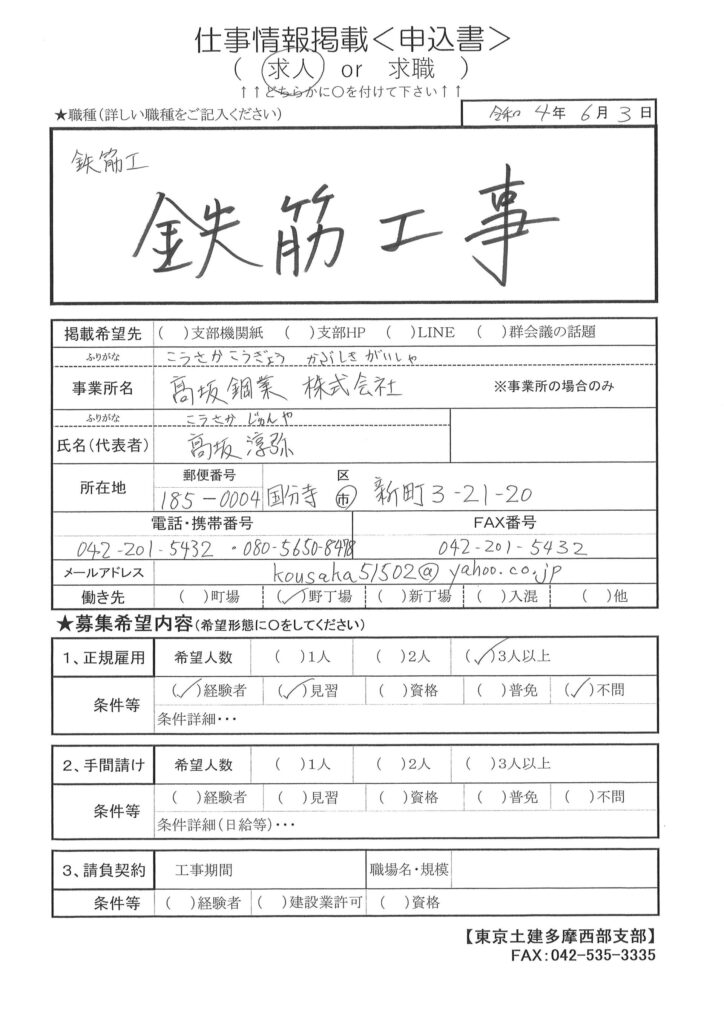 仕事情報掲載＜申込書＞
( 求人 or 求職 )
↑↑どちらかに○を付けて下さい↑↑
★職種(詳しい職種をご記入ください) 令和 4年 6月 3日
鉄筋工
鉄筋工事
掲載希望先 ( )支部機関紙 ( )支部HP ( )LINE ( )群会議の話題
ふりがな こうさかこうぎょう かぶしきがいしゃ
事業所名 高坂鋼業 株式会社 ※事業所の場合のみ
ふりがな こうさか じゅんや
氏名(代表者) 高坂 淳弥
所在地 郵便番号 区
185-0004 国分寺 市 新町3-21-20
電話・携帯番号 FAX番号
042-201-5432 ・080-5650-8478 042-201-5432
メールアドレス kousaka51502@yahoo.co.jp
働き先 ( )町場 (✓)野丁場 ( )新丁場 ( )入混 ( )他
★募集希望内容(希望形態に○をしてください)
1、正規雇用 希望人数 ( )1人 ( )2人 (✓)3人以上
条件等 (✓)経験者 (✓)見習 ( )資格 ( )普免 (✓)不問
条件詳細・・・
2、手間請け 希望人数 ( )1人 ( )2人 ( )3人以上
条件等 ( )経験者 ( )見習 ( )資格 ( )普免 ( )不問
条件詳細(日給等)・・・
3、請負契約 工事期間 職場名・規模
条件等 ( )経験者 ( )建設業許可 ( )資格
【東京土建多摩西部支部】
FAX:042-535-3335